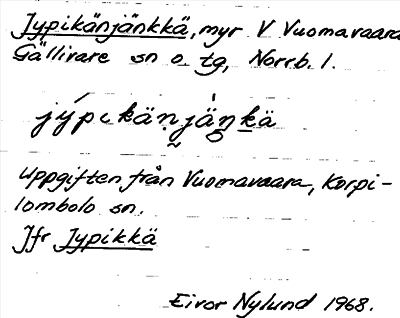 Jypikänjänkkä, myr V Vuomavaara
Gällivare sn o tg, Norrb. l.
jýpikäṋjäŋkä
Uppgiften från Vuomavaara, Korpi-
lombolo sn.
Jfr Jypikkä
Eivor Nylund 1968.